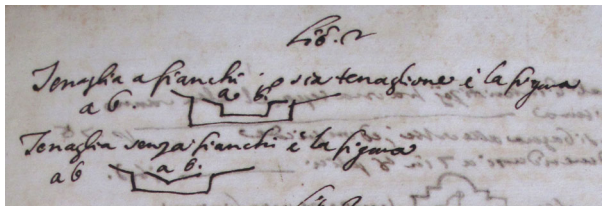 Lib. 2
Tenaglia a fianchi, o sia tenaglione è la figura
a b.
a. b.
Tenaglia senza fianchi è la figura
a b
a b.